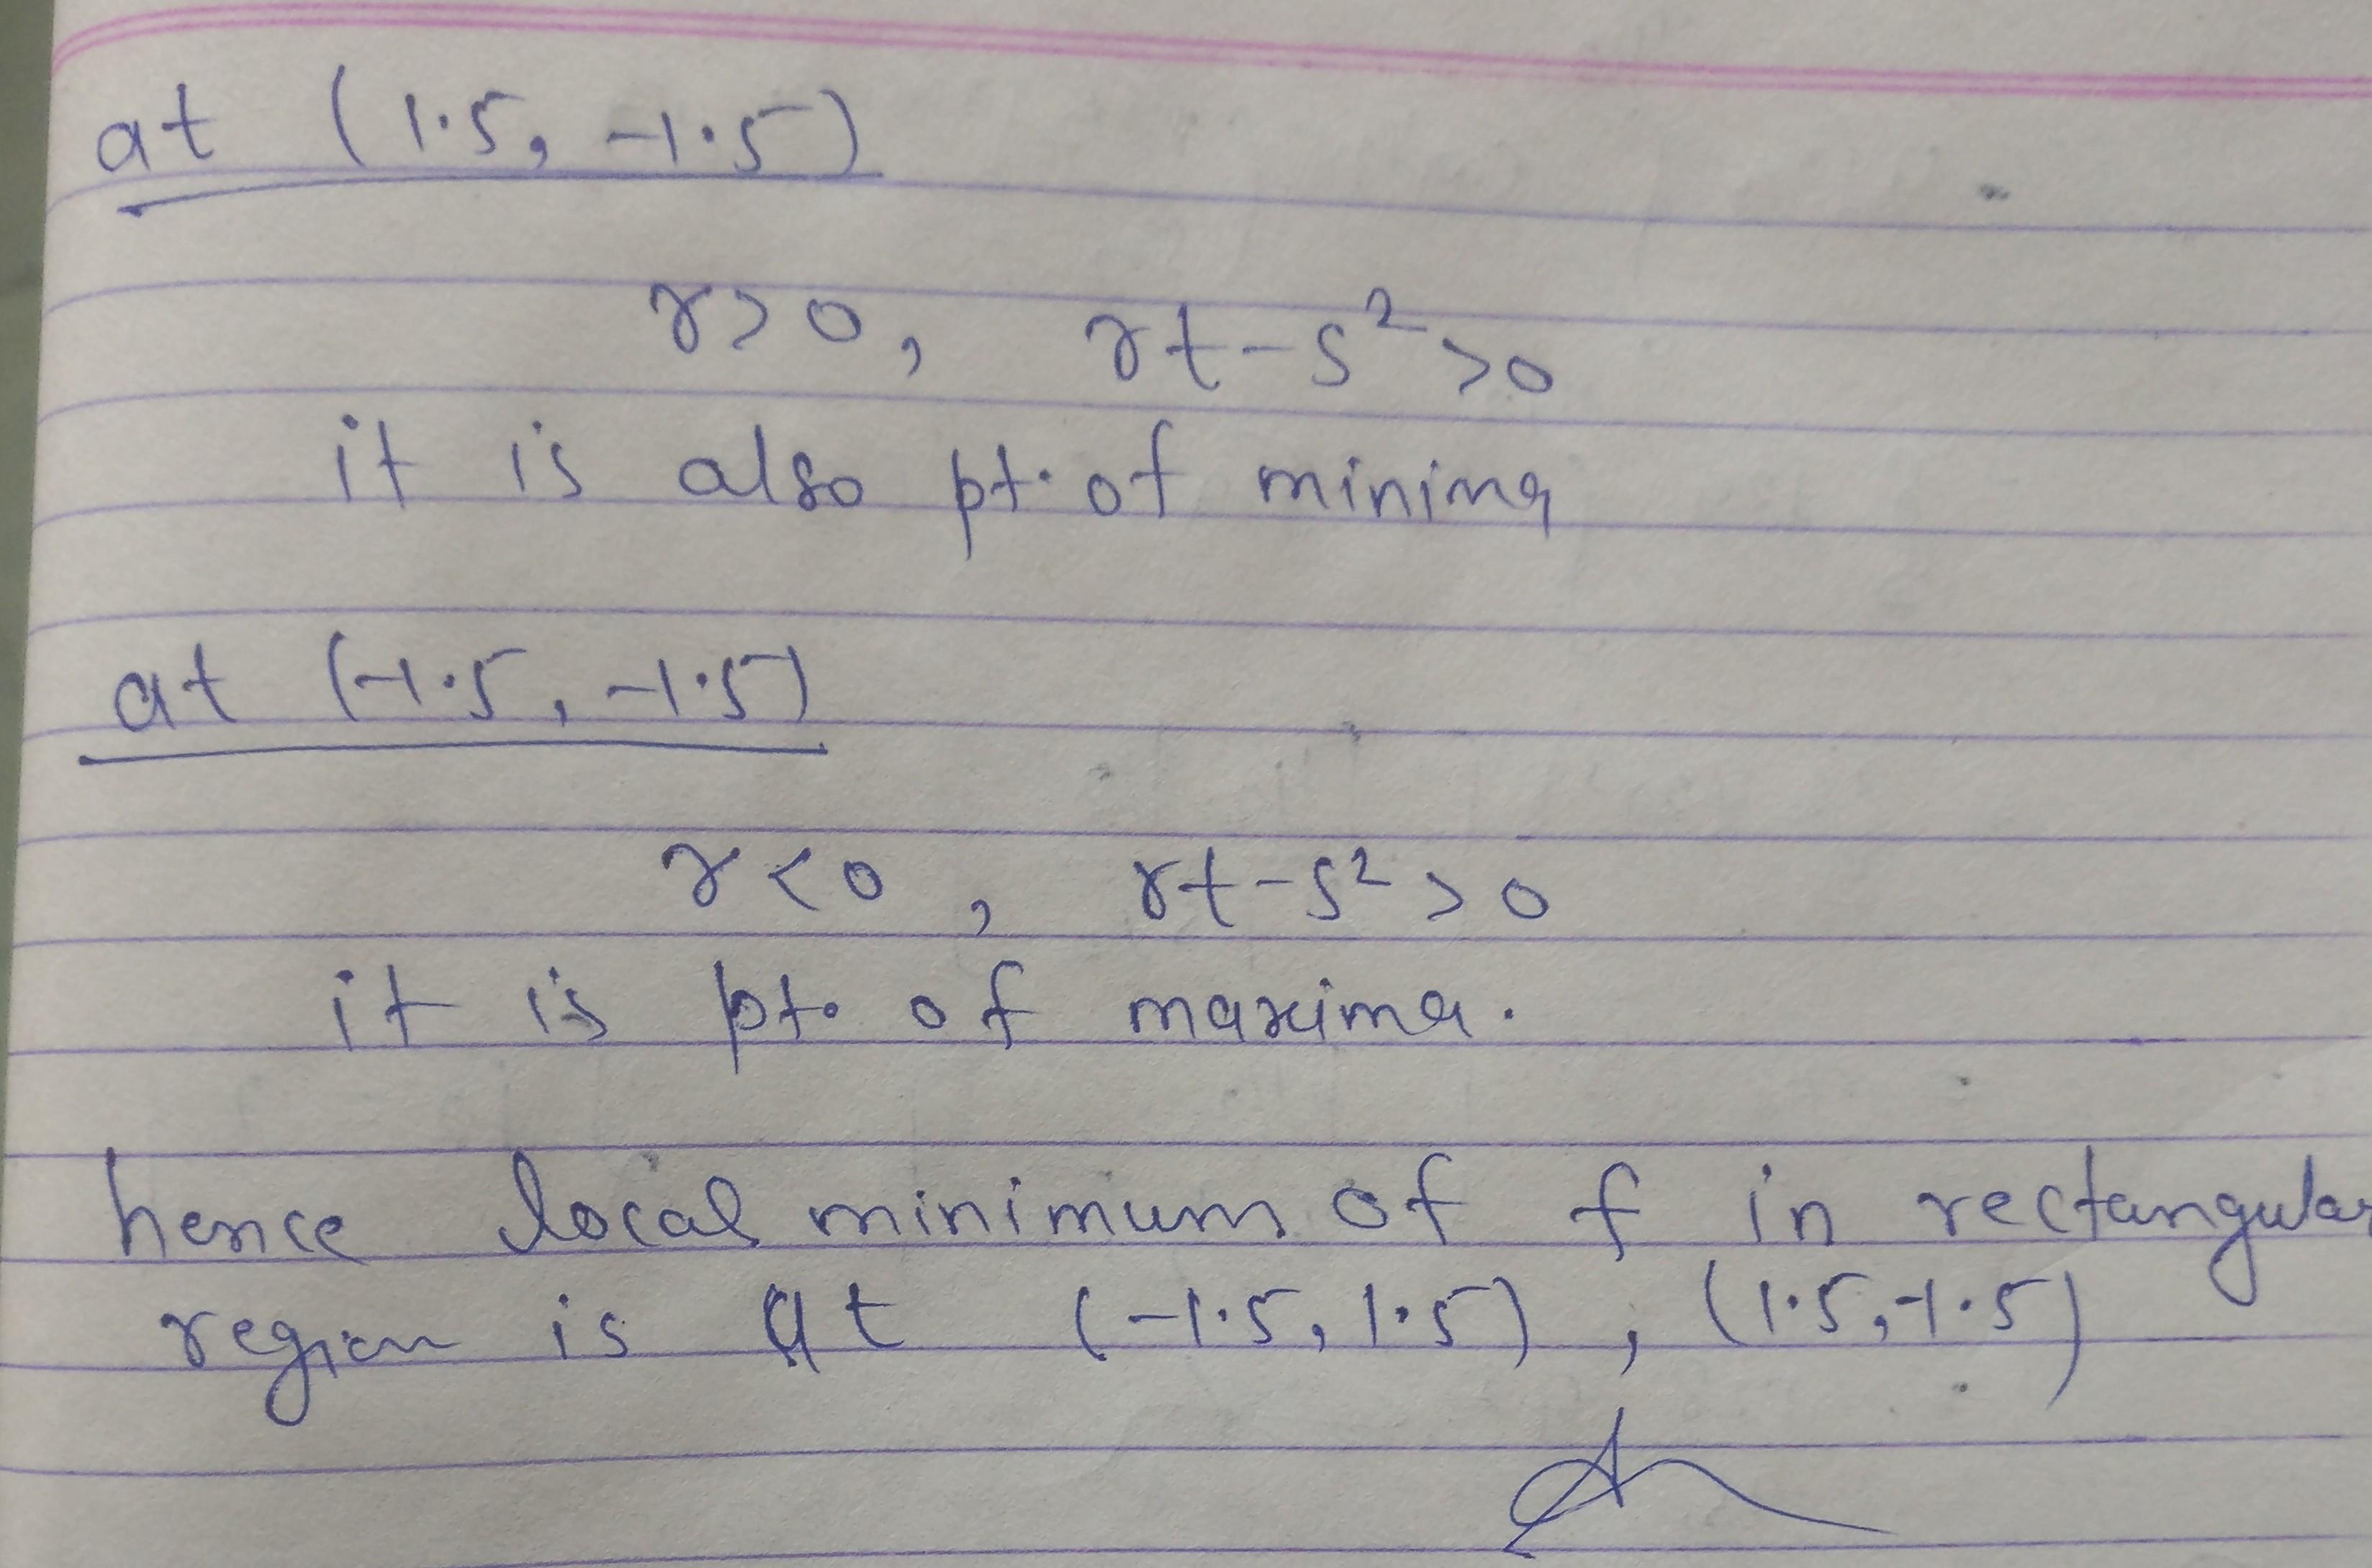 at (1.5, -1.5)
r>0, rt-s²>0
it is also pt. of minima
at (-1.5, -1.5)
r<0, rt-s²>0
it is pt. of maxima.
hence local minimum of f in rectangular
region is at (-1.5, 1.5), (1.5, -1.5)